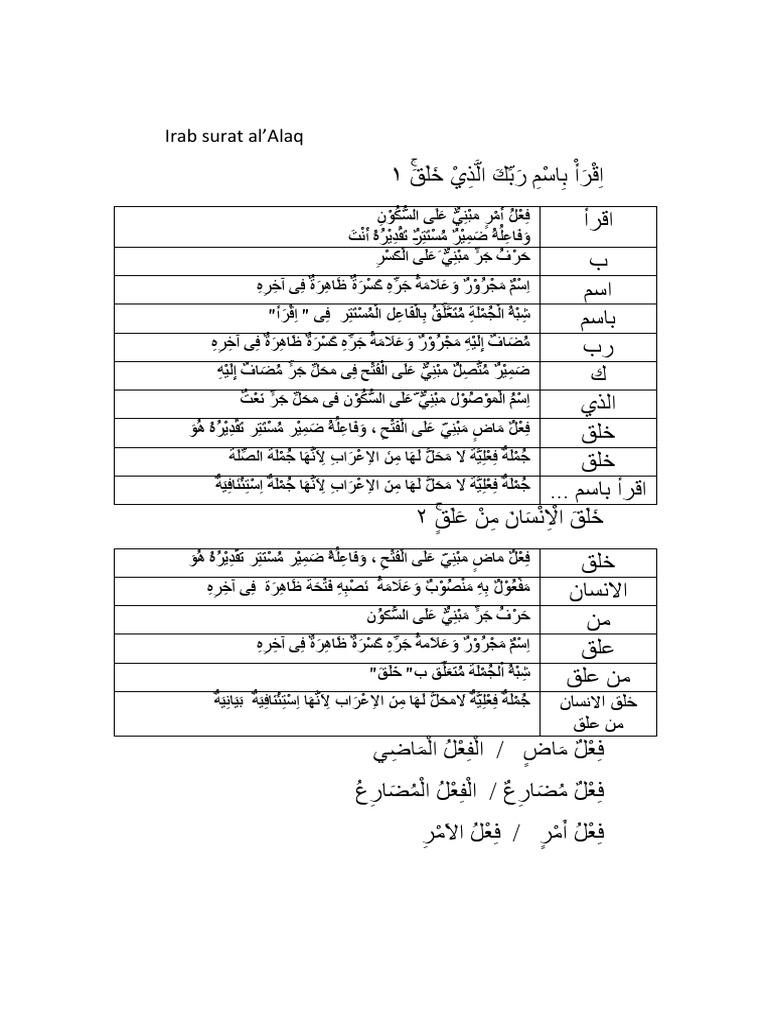 Irab surat al’Alaq
اِقْرَأْ بِاسْمِ رَبِّكَ الَّذِيْ خَلَقَۚ ١
اقرأ فِعْلُ أَمْرٍ مَبْنِيٌّ عَلَى السُّكُوْنِ
وَفَاعِلُهُ ضَمِيْرٌ مُسْتَتِرٌ تَقْدِيْرُهُ أَنْتَ
ب حَرْفُ جَرٍّ مَبْنِيٌّ عَلَى الْكَسْرِ
اسم اِسْمٌ مَجْرُوْرٌ وَعَلَامَةُ جَرِّهِ كَسْرَةٌ ظَاهِرَةٌ فِى آخِرِهِ
باسم شِبْهُ الْجُمْلَةِ مُتَعَلِّقٌ بِالْفَاعِلِ الْمُسْتَتِرِ فِى " اِقْرَأْ"
رب مُضَافٌ إِلَيْهِ مَجْرُوْرٌ وَعَلَامَةُ جَرِّهِ كَسْرَةٌ ظَاهِرَةٌ فِى آخِرِهِ
ك ضَمِيْرٌ مُتَّصِلٌ مَبْنِيٌّ عَلَى الْفَتْحِ فِى مَحَلِّ جَرٍّ مُضَافٌ إِلَيْهِ
الذي اِسْمُ الْمَوْصُوْل مَبْنِيٌّ عَلَى السُّكُوْن فى مَحَلِّ جَرٍّ نَعْتٌ
خلق فِعْلٌ مَاضٍ مَبْنِيّ عَلَى الْفَتْحِ ، وَفَاعِلُهُ ضَمِيْر مُسْتَتِر تَقْدِيْرُهُ هُوَ
خلق جُمْلَةٌ فِعْلِيَّة لَا مَحَلَّ لَهَا مِنَ الْاِعْرَابِ لِأَنَّهَا جُمْلَة الصِّلَة
اقرأ باسم ... جُمْلَةٌ فِعْلِيَّةٌ لَا مَحَلَّ لَهَا مِنَ الْاِعْرَابِ لِأَنَّهَا جُمْلَةٌ اِسْتِئْنَافِيَةٌ
خَلَقَ الْاِنْسَانَ مِنْ عَلَقٍۚ ٢
خلق فِعْلٌ مَاضٍ مَبْنِيّ عَلَى الْفَتْحِ ، وَفَاعِلُهُ ضَمِيْر مُسْتَتِر تَقْدِيْرُهُ هُوَ
الانسان مَفْعُوْلٌ بِهِ مَنْصُوْبٌ وَعَلَامَةُ نَصْبِهِ فَتْحَة ظَاهِرَة فِى آخِرِهِ
من حَرْفُ جَرٍّ مَبْنِيٌّ عَلَى السُّكُوْن
علق اِسْمٌ مَجْرُوْرٌ وَعَلَامةُ جَرِّهِ كَسْرَةٌ ظَاهِرَةٌ فِى آخِرِهِ
من علق شِبْهُ الْجُمْلَة مُتَعَلِّق ب" خَلَقَ"
خلق الانسان جُمْلَةٌ فِعْلِيَّةٌ لَامحَلَّ لَهَا مِنَ الْاِعْرَاب لِأَنَّهَا اِسْتِئْنَافِيَةٌ بَيَانِيَةٌ
من علق
فِعْلٌ مَاضٍ / الْفِعْلُ الْمَاضِي
فِعْلٌ مُضَارِعٌ / الْفِعْلُ الْمُضَارِعُ
فِعْلُ أَمْرٍ / فِعْلُ الاَمْرِ